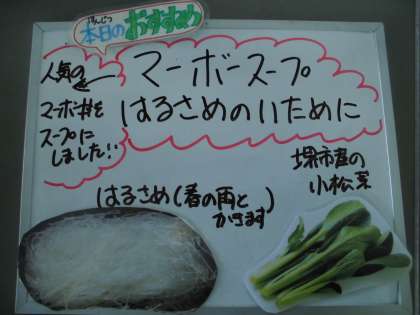 ほんじつ
本日のおすすめ
人気の
マーボ丼を
スープに
しました!!
マーボースープ
はるさめのいために
堺市産の
小松菜
はるさめ(春の雨と
かきます)